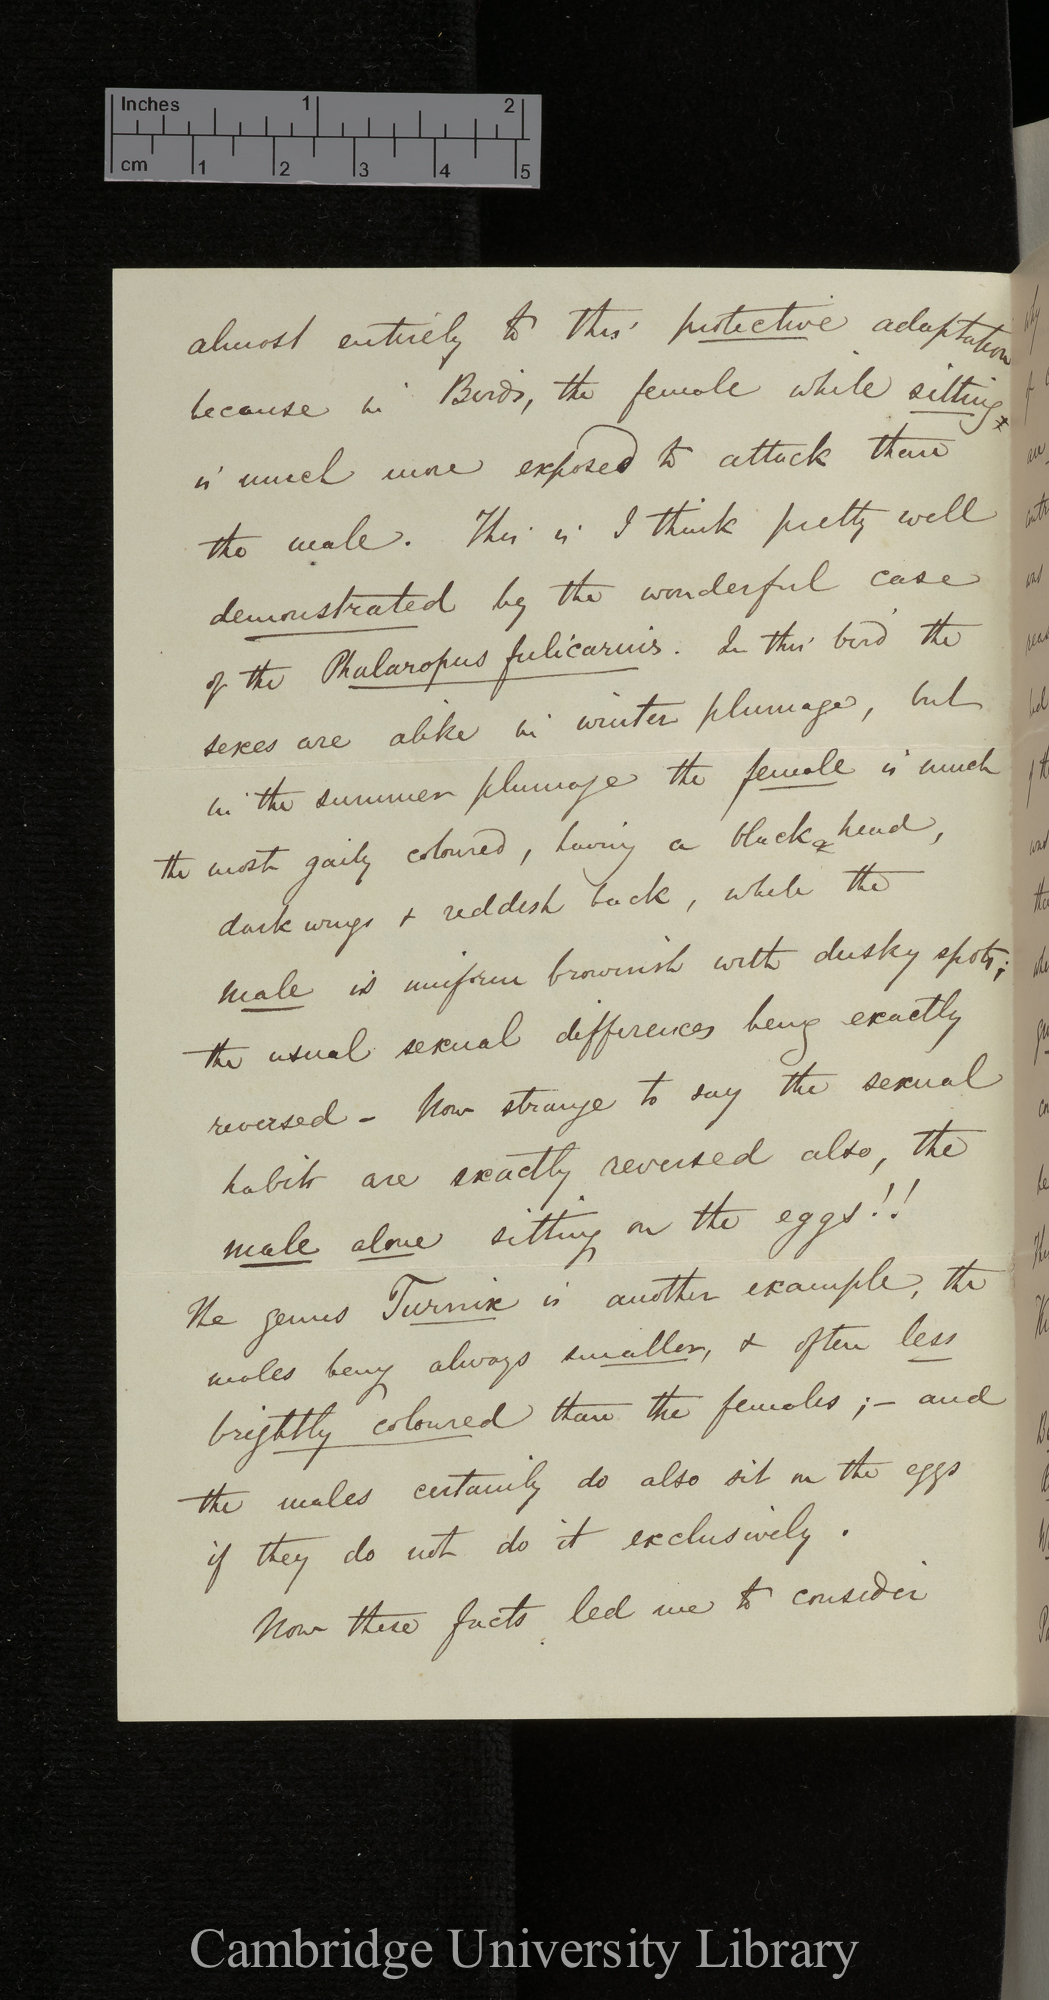 Inches 1 2
cm 1 2 3 4 5
almost entirely to this protective adaptation
because in Birds, the female while sitting
is much more exposed to attack than
the male. This is I think pretty well
demonstrated by the wonderful case
of the Phalaropus fulicarius. In this bird the
sexes are alike in winter plumage, but
in the summer plumage the female is much
the most gaily coloured, having a black head,
dark wings & reddish back, while the
male is uniform brownish with dusky spots;
the usual sexual differences being exactly
reversed – Now strange to say the sexual
habits are exactly reversed also, the
male alone sitting on the eggs!!
The genus Turnix is another example, the
males being always smaller, & often less
brightly coloured than the females; – and
the males certainly do also sit on the eggs
if they do not do it exclusively.
Now these facts led me to consider
Cambridge University Library